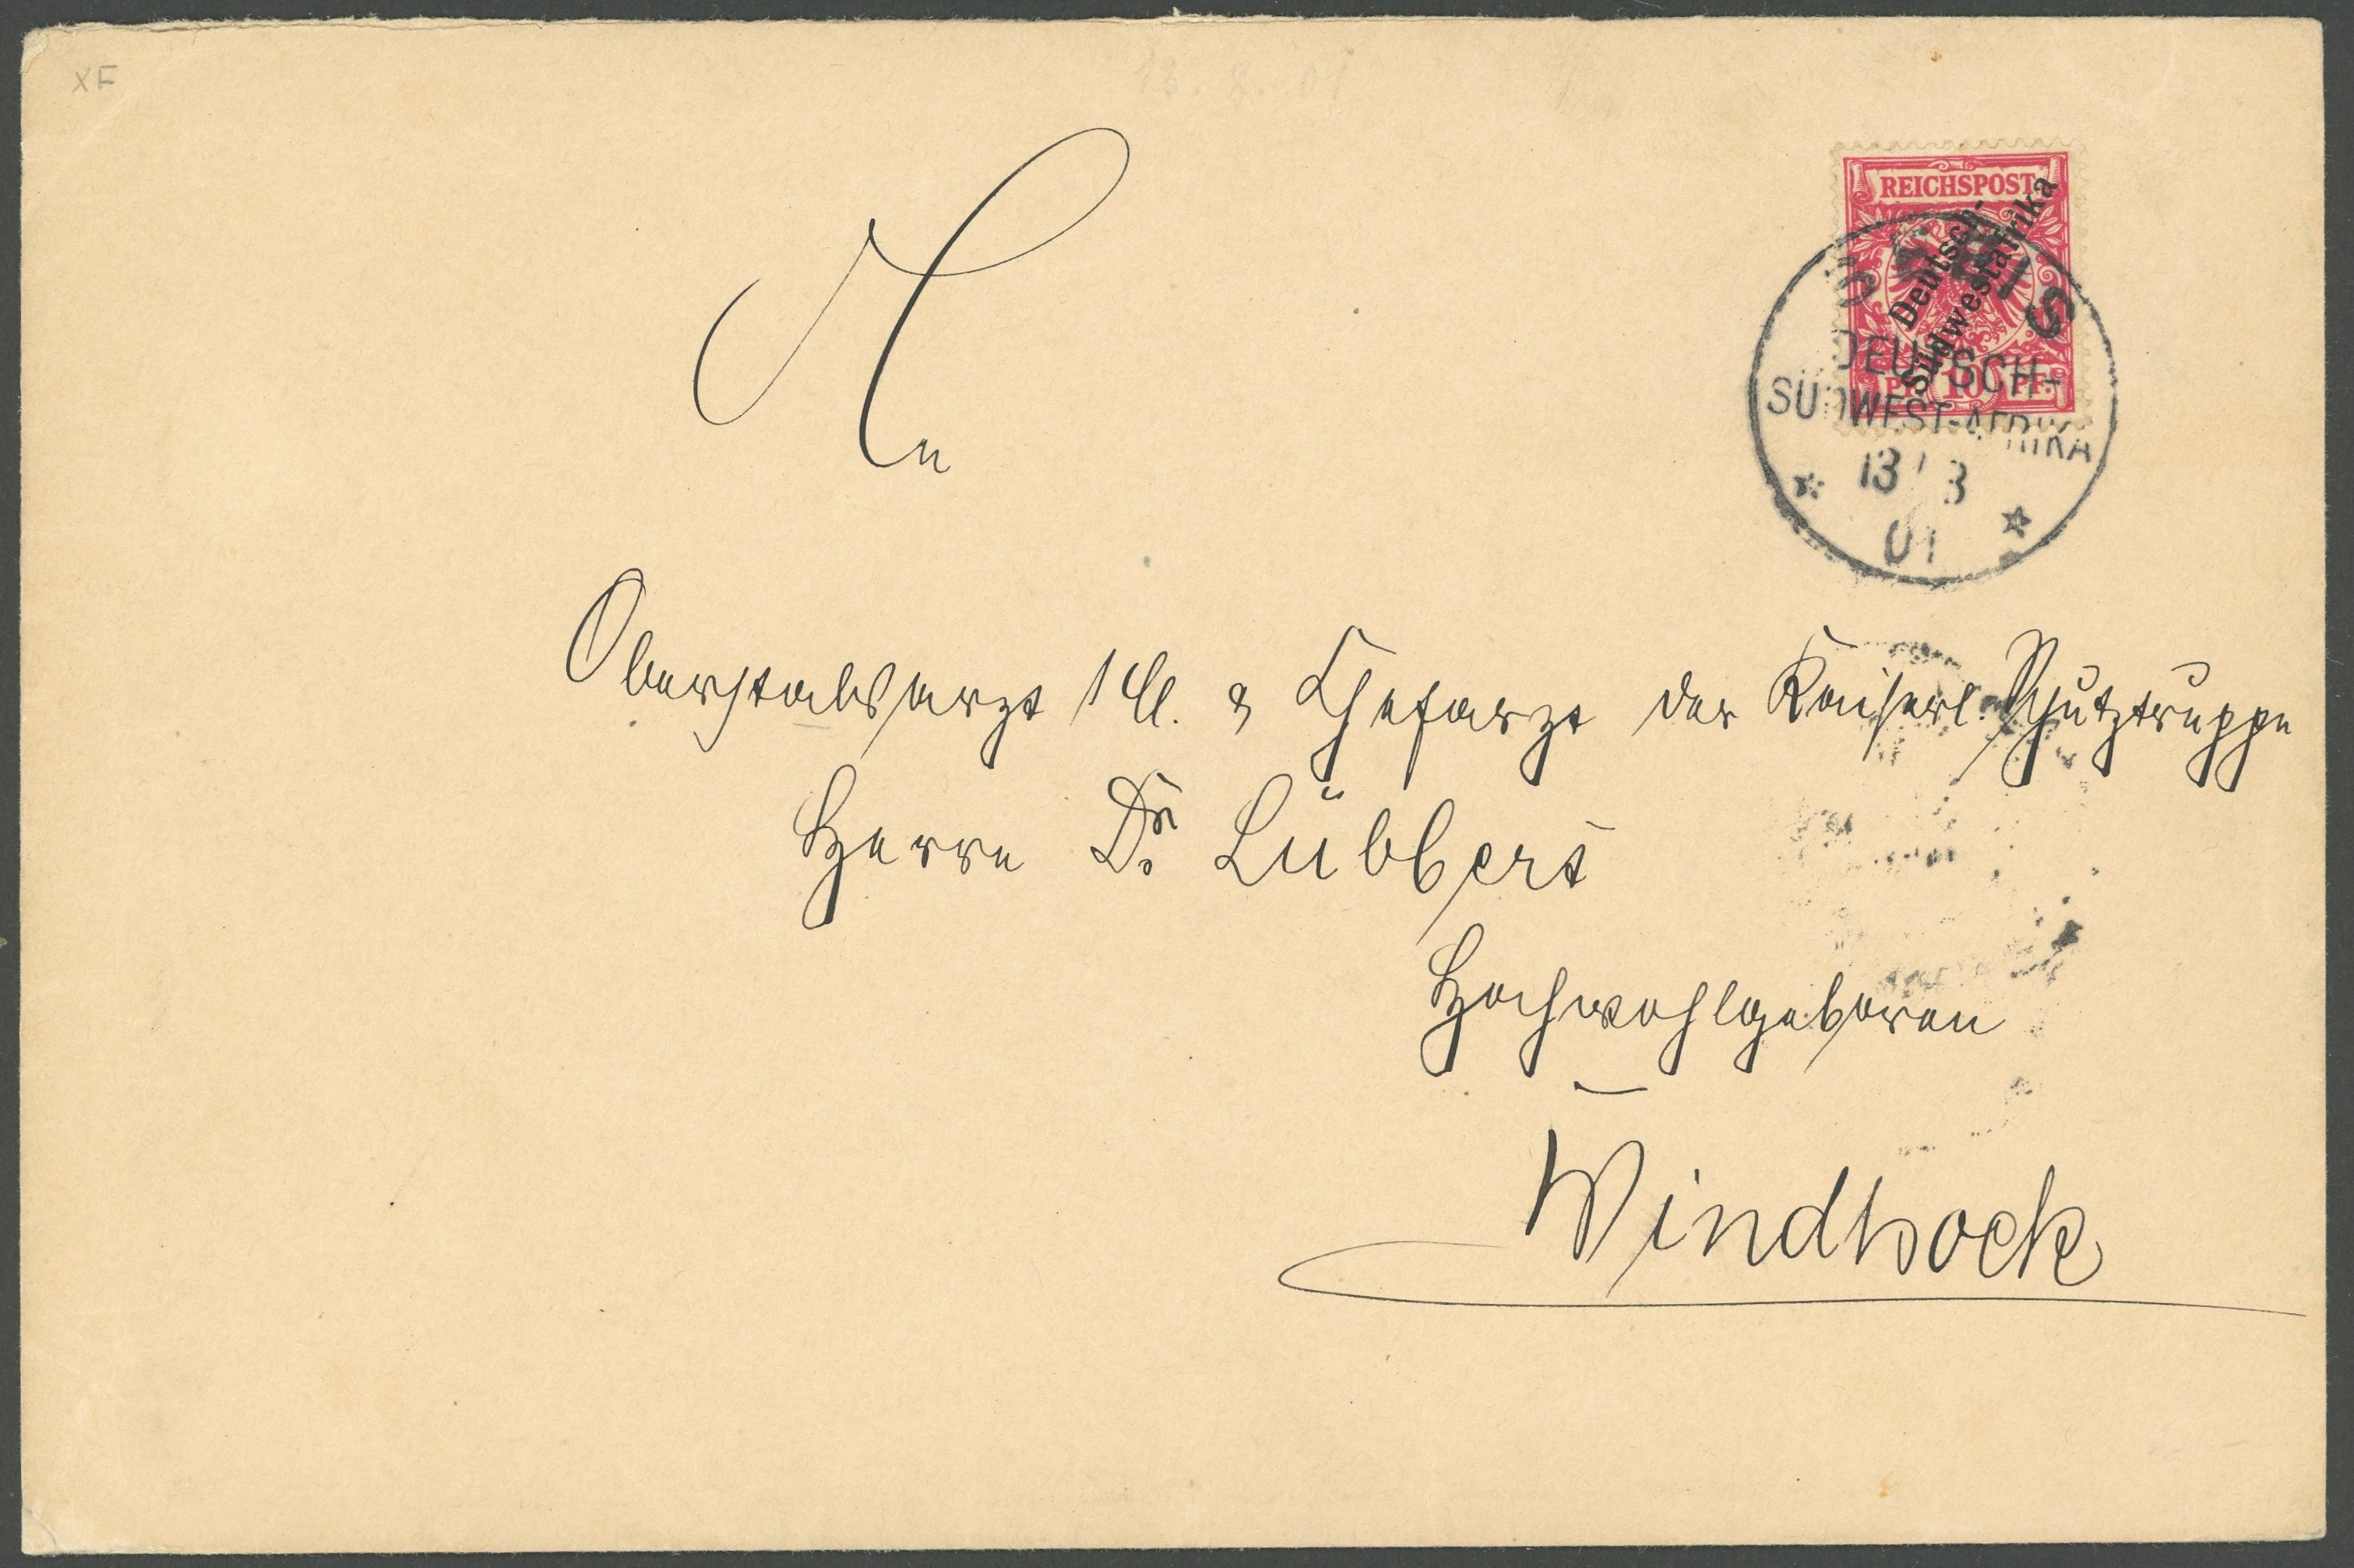 XF
REICHSPOST
Deutsch-
Südwestafrika
PF. 10 PF.
DEUTSCH-
SÜDWEST-AFRIKA
13
01
An
Oberstabsarzt 1 Cl. & Chefarzt der Kaiserl. Schutztruppe
Herrn Dr. Lübbert
Hochwohlgeboren
Windhoek